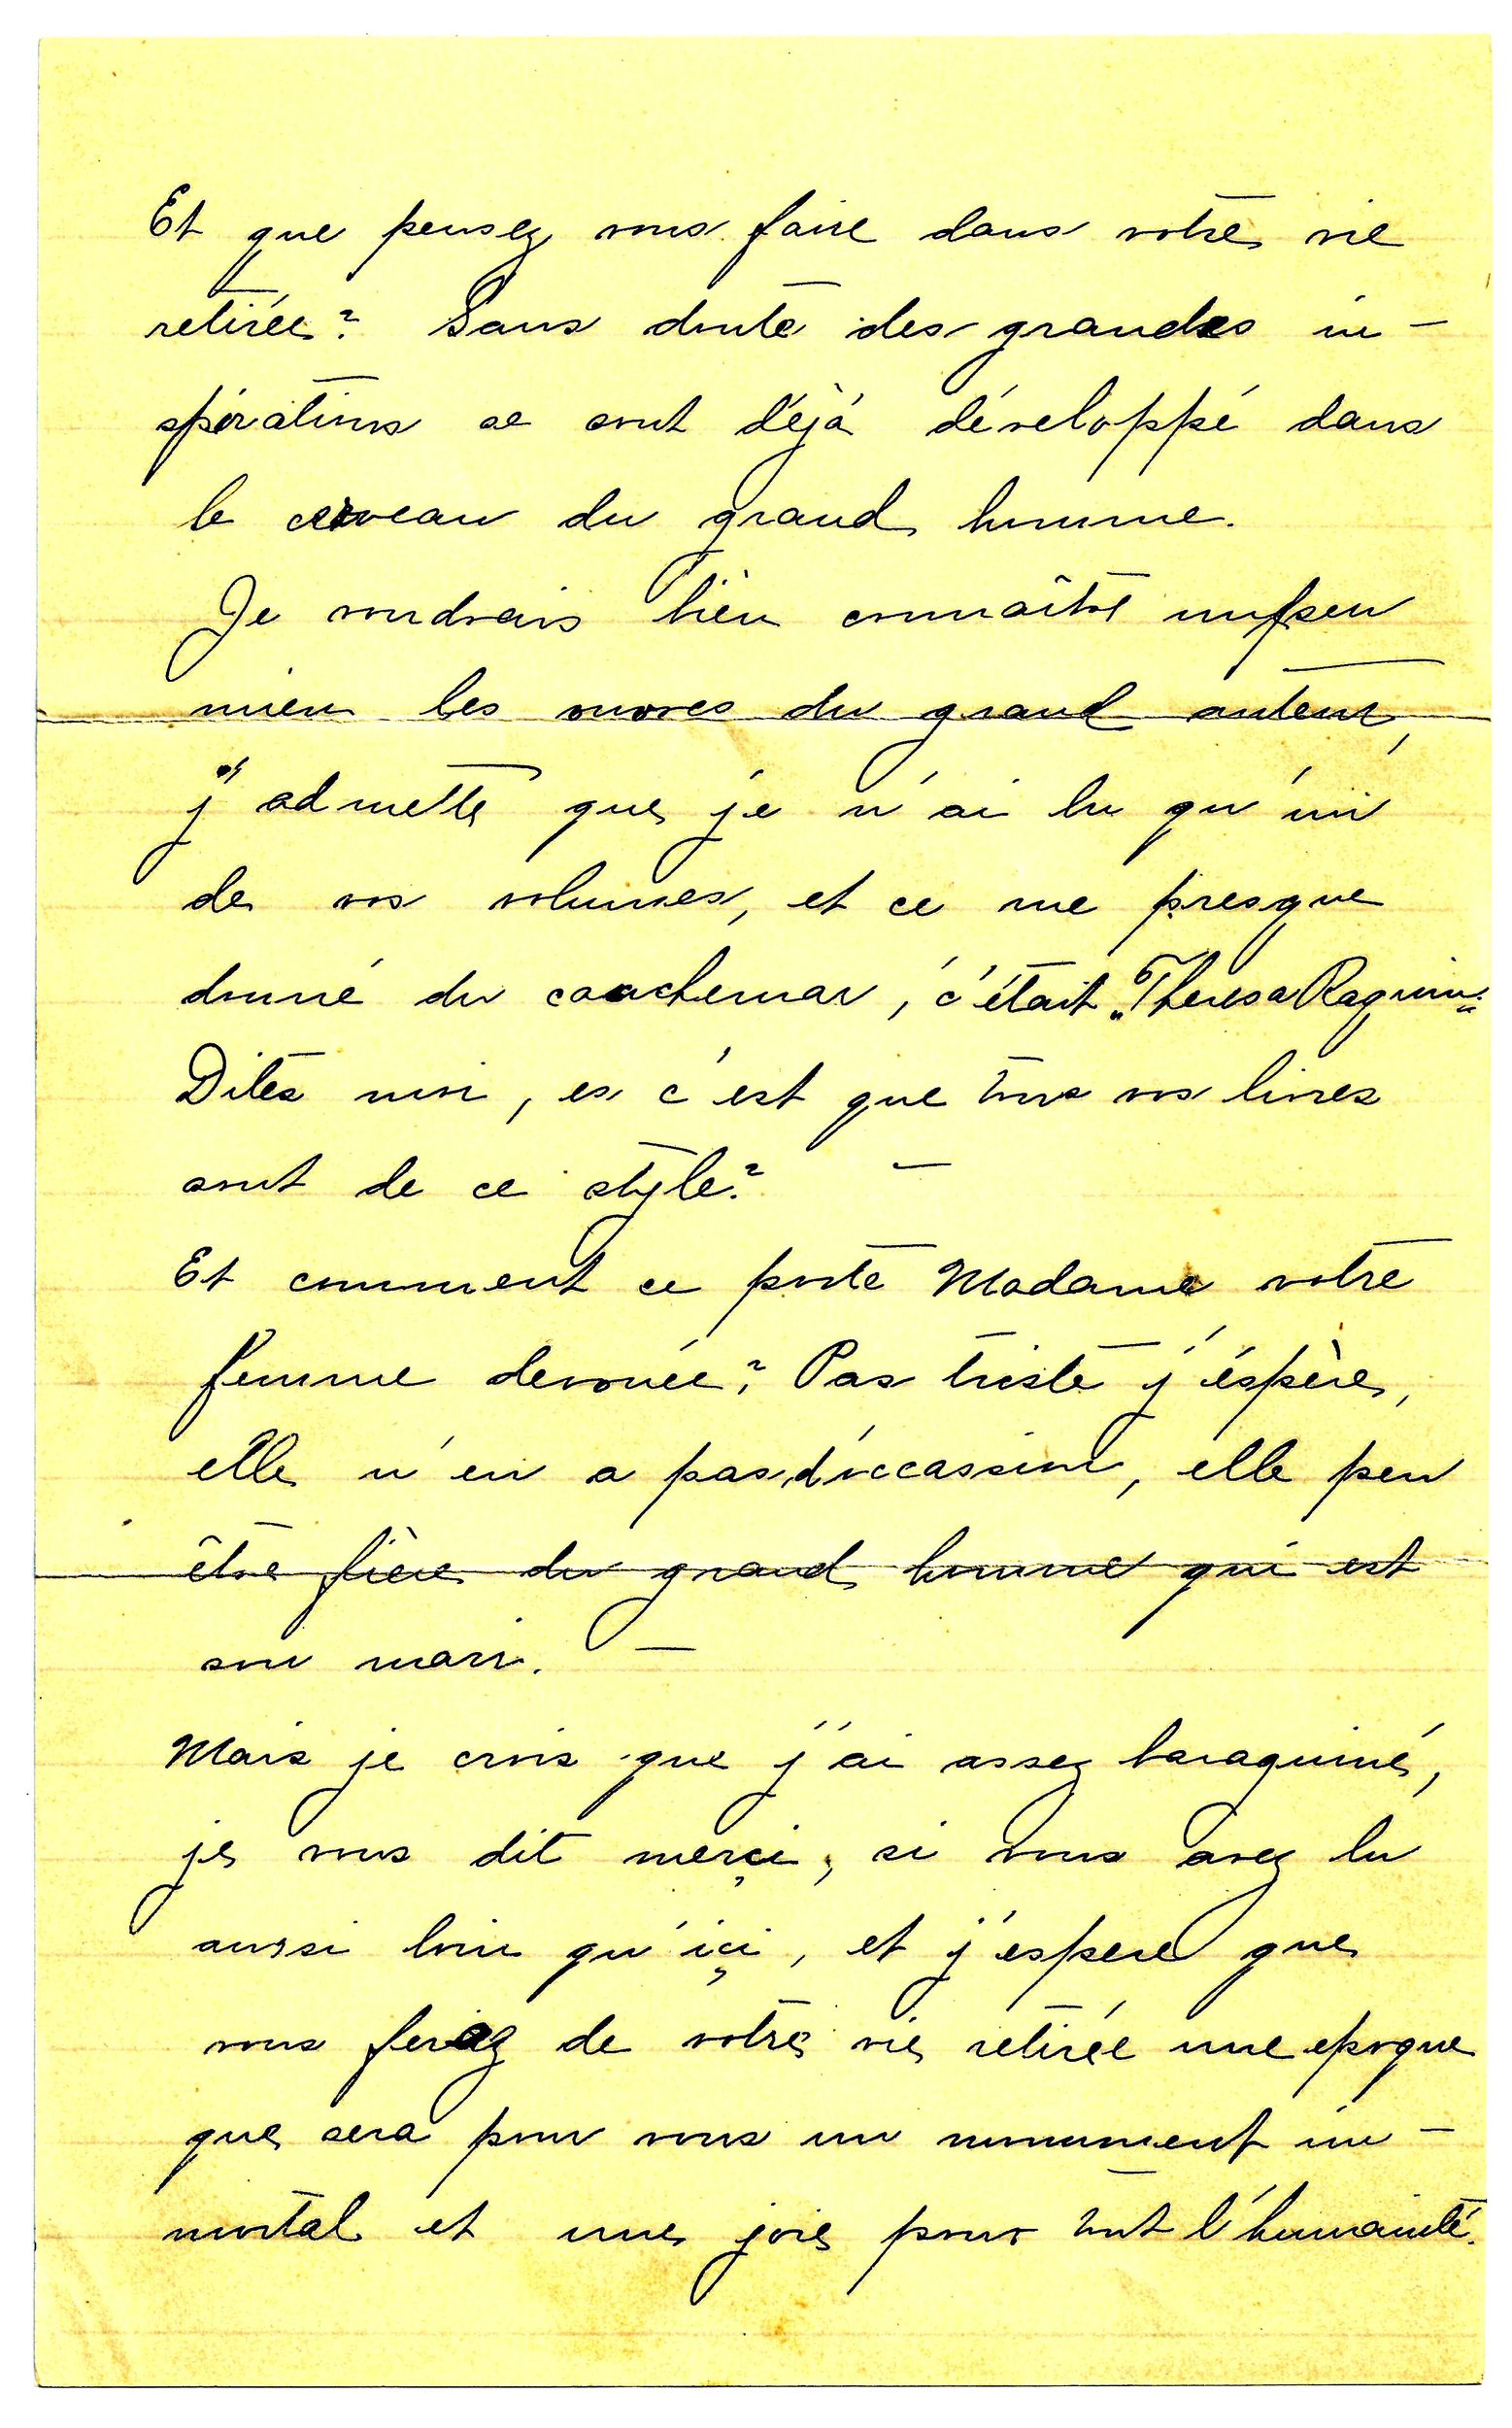 Et que pensez vous faire dans votre vie
retirée? Sans doute des grandes in-
spirations se sont déjà développé dans
le cerveau du grand homme.
Je voudrais bien connaître un peu
mieu les ouvres du grand auteur,
j'admette que je n'ai lu qu'un
de vos volumes, et ce me presque
donné du cauchemar, c'était „Theresa Raquin“.
Dites moi, es c'est que tous vos livres
sont de ce style? –
Et comment ce porte Madame votre
femme devouée? Pas triste j'éspère,
elle n'en a pas d'occassion, elle peu
être fière du grand homme qui est
son mari. –
Mais je crois que j'ai assez baraguiné,
je vous dit merçi, si vous avez lu
aussi loin qu'içi, et j'espere que
vous ferez de votre vie retirée une epoque
que sera pour vous un monument im-
mortal et une joie pour tout l'humanité.